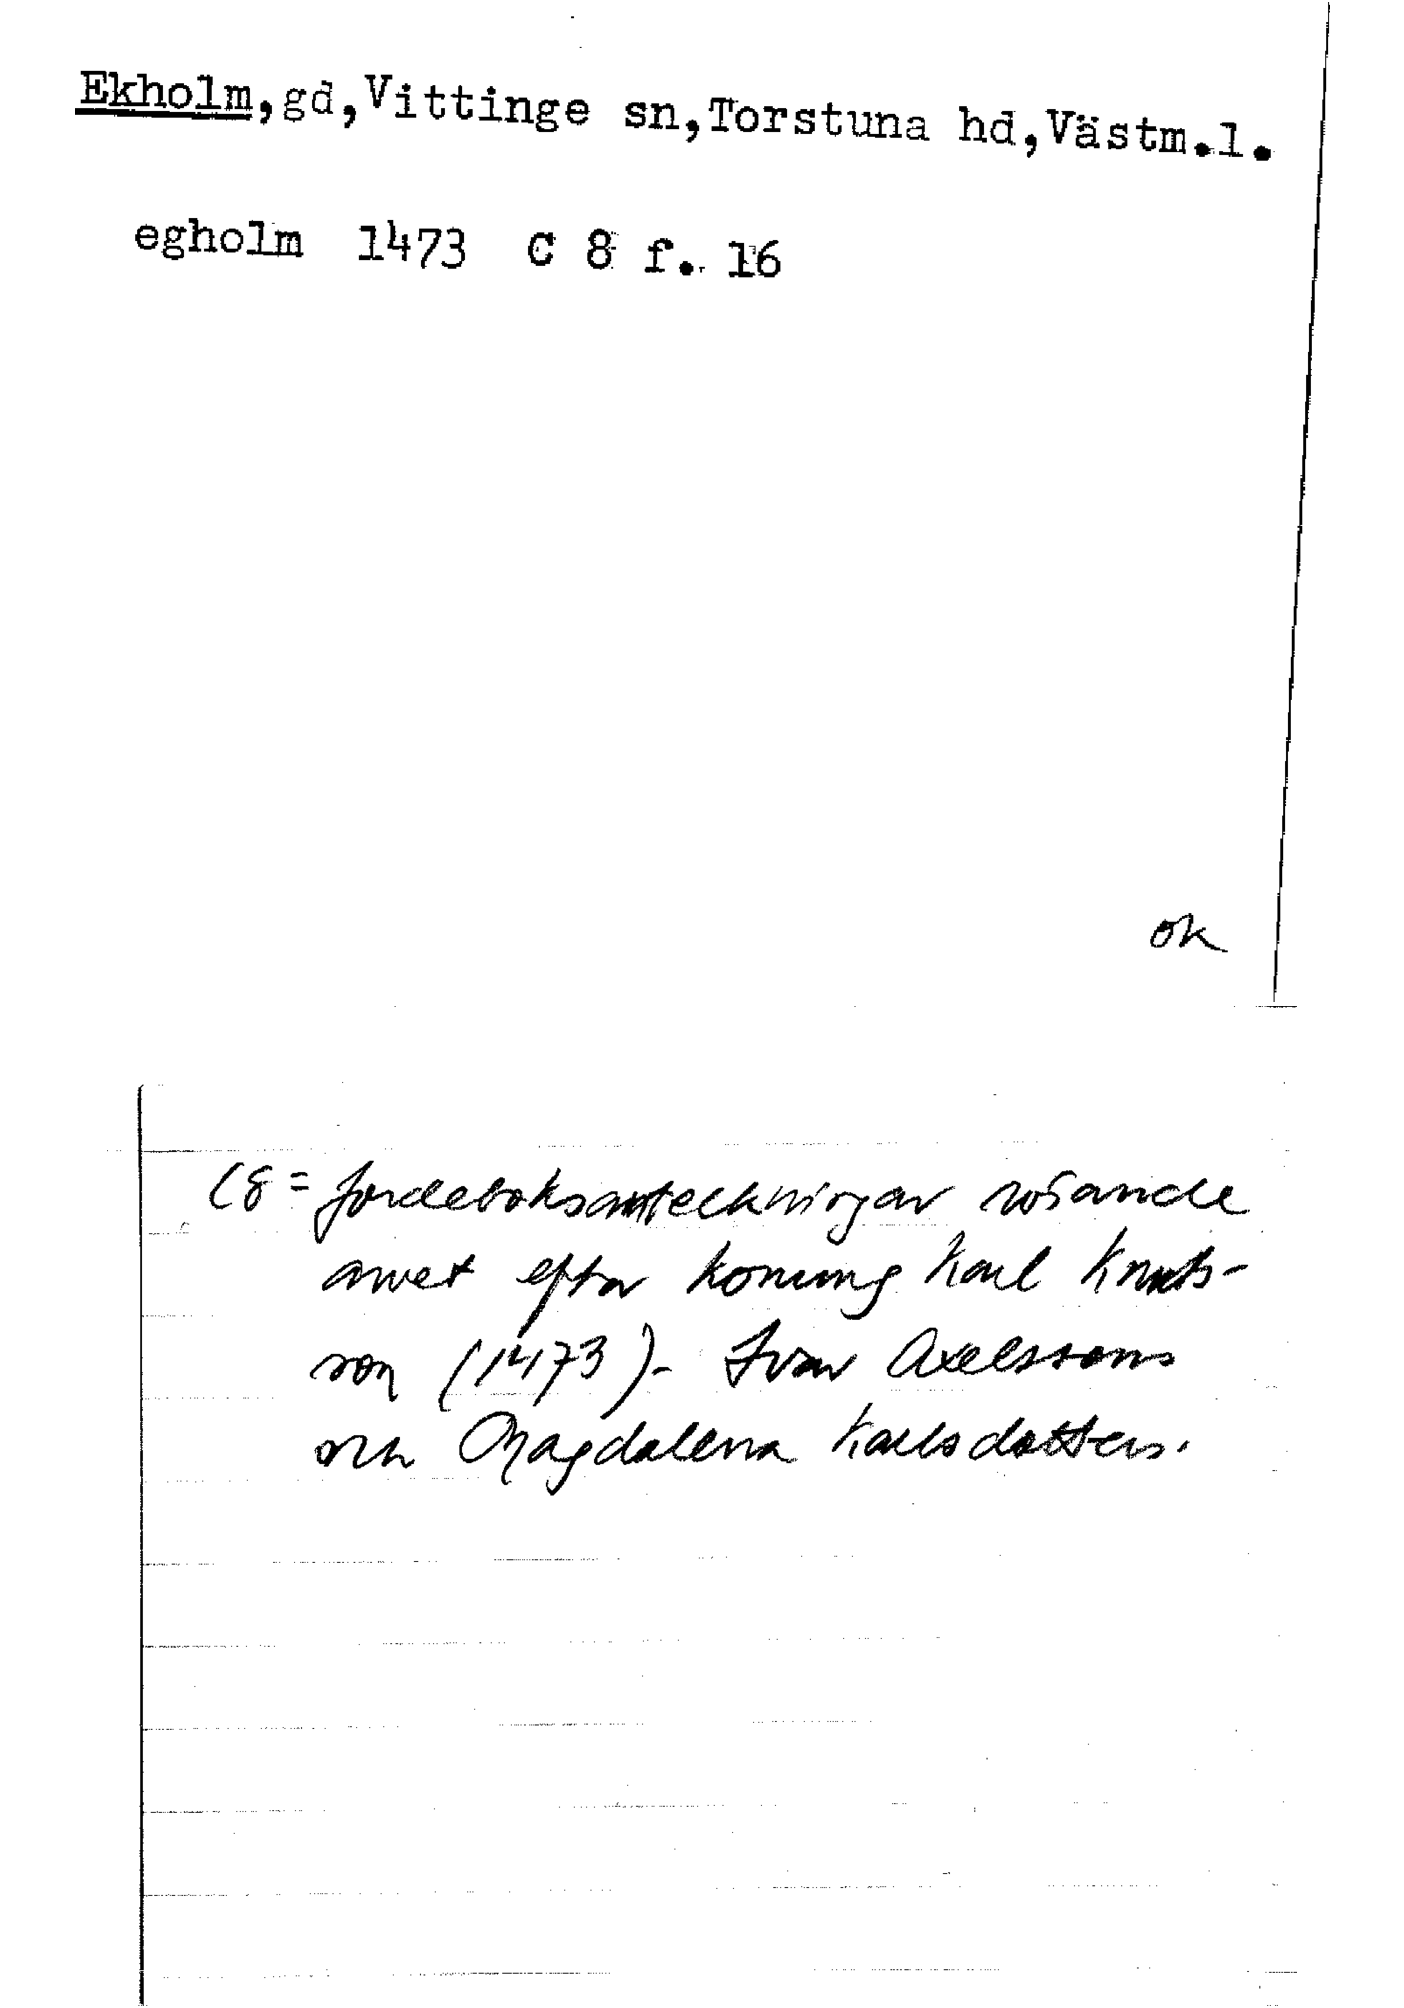 Ekholm, gd, Vittinge sn, Torstuna hd, Västm.l.
egholm 1473 C 8 f. 16
ok
C8 = jordeboksanteckningar rörande
arvet efter konung Karl Knuts-
son (1473). Ivar Axelssons
och Magdalena Karlsdotters.